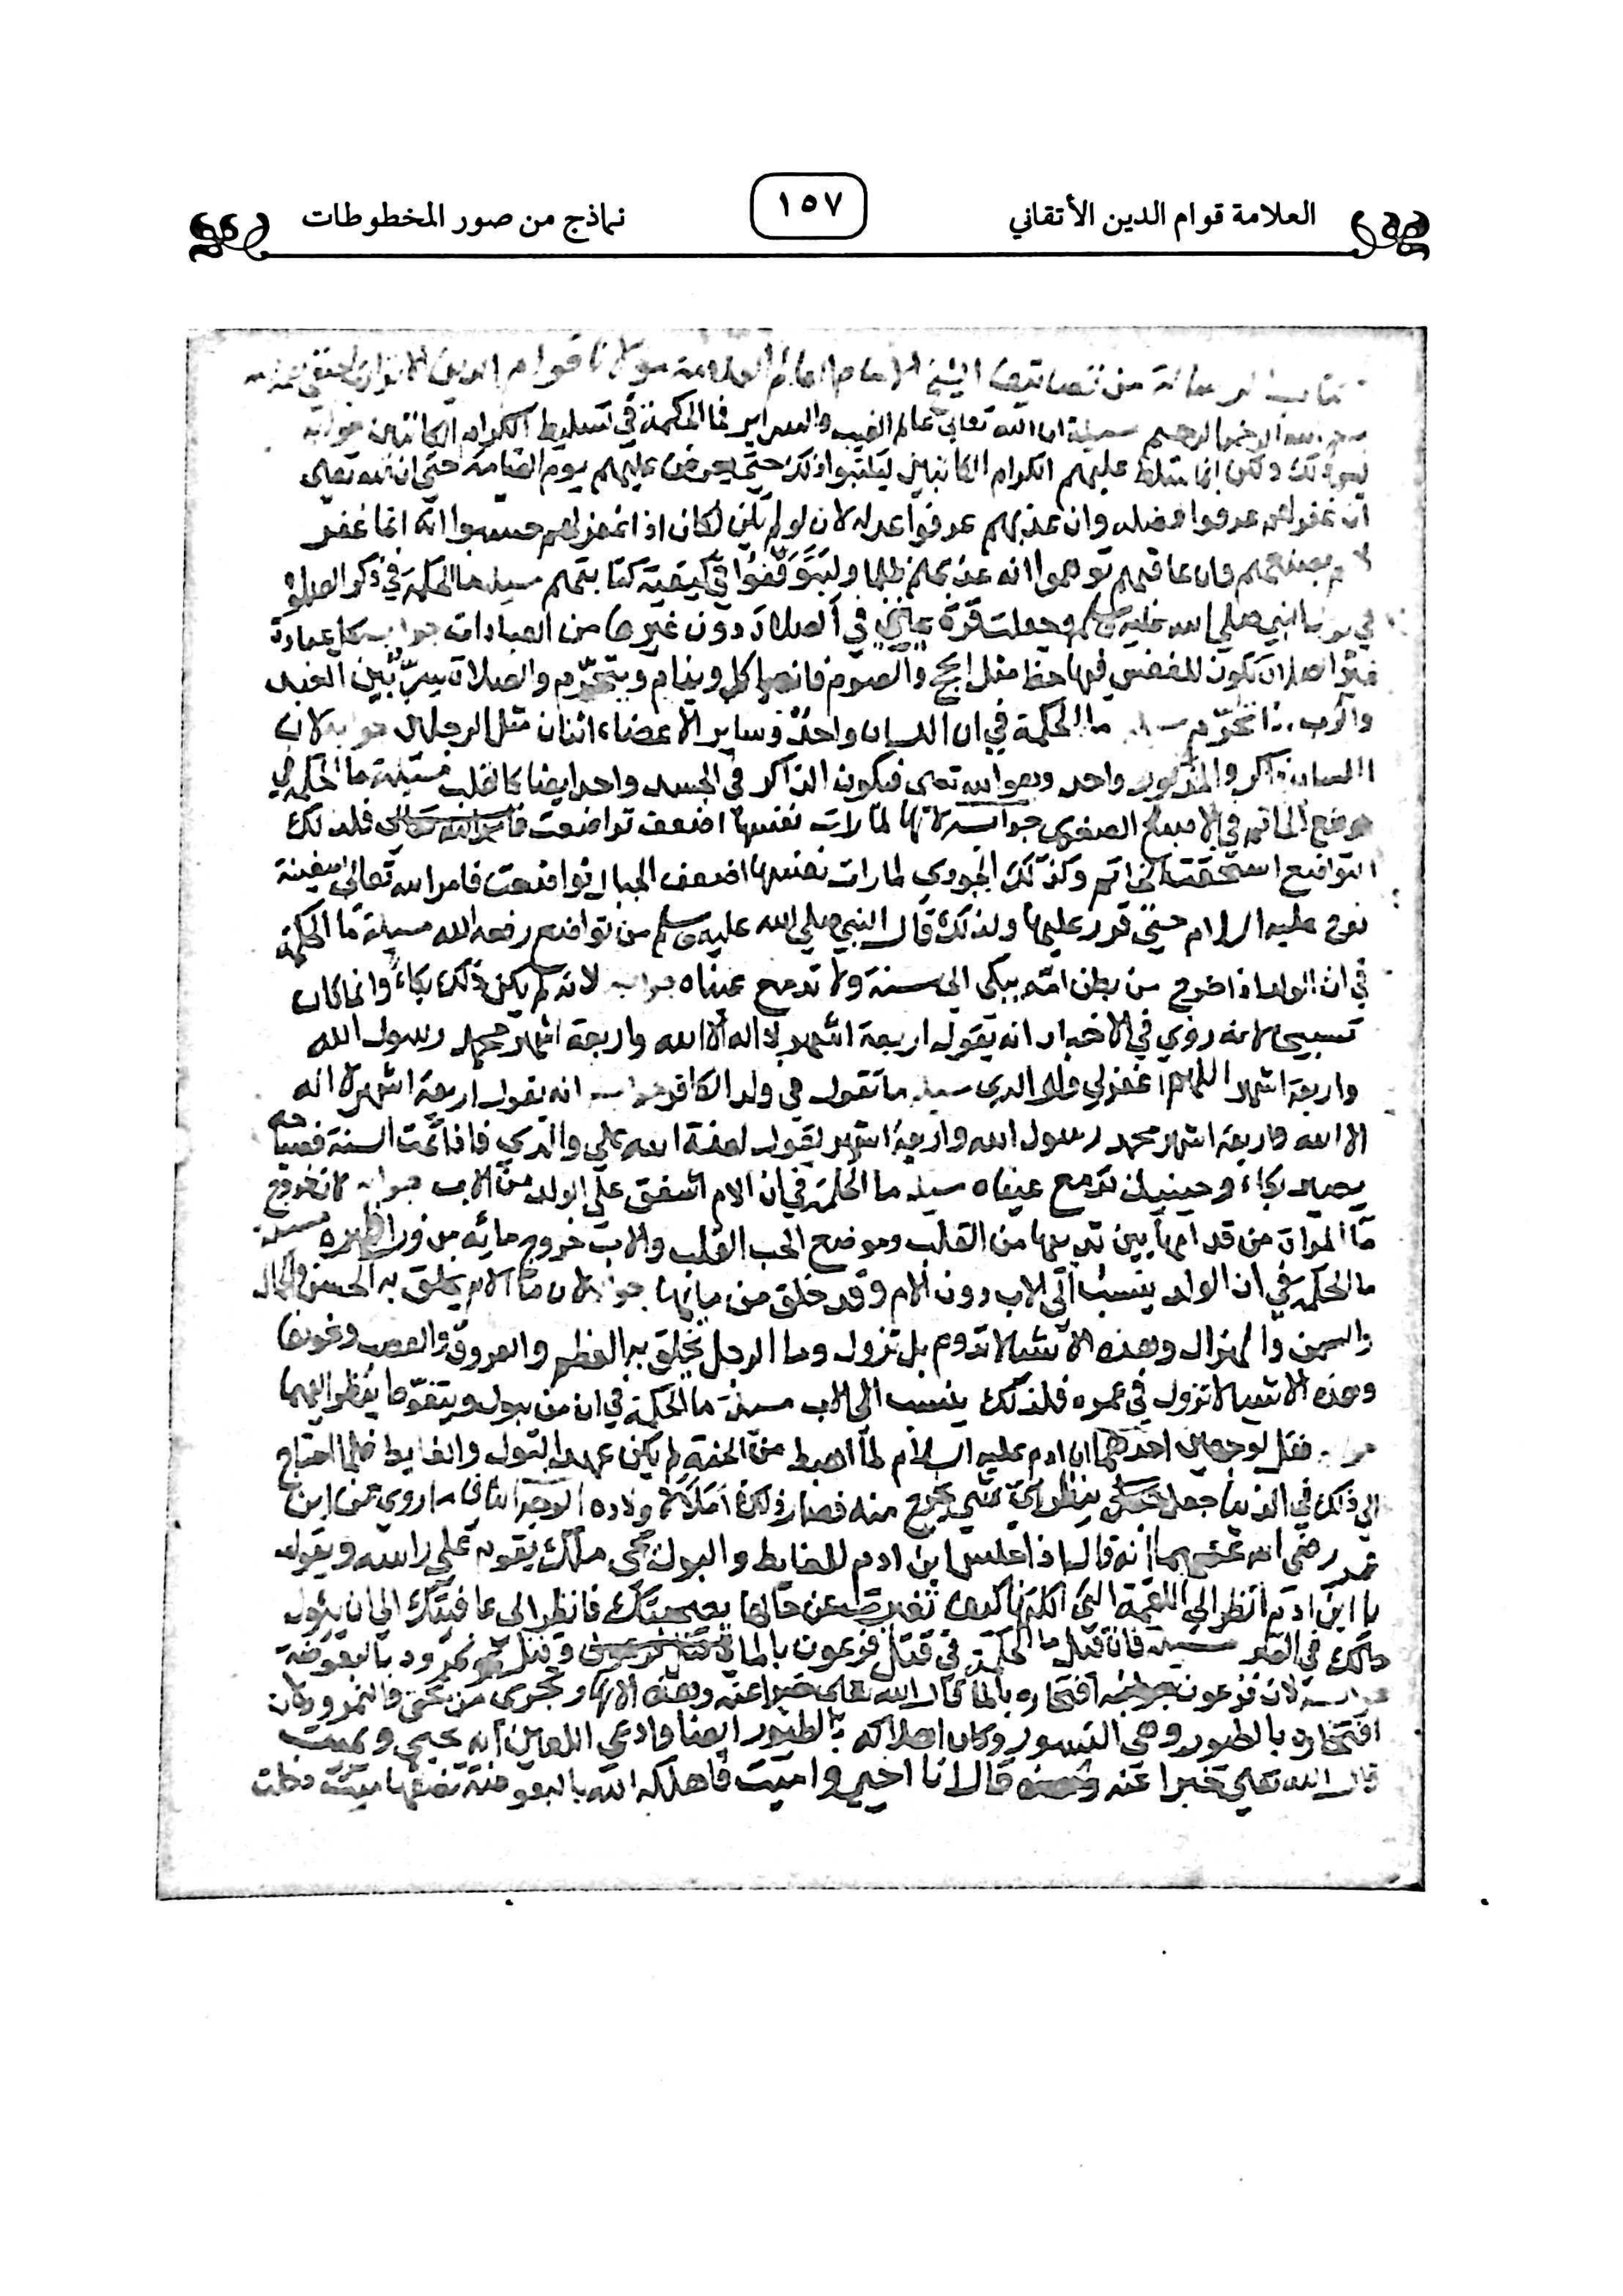 العلامة قوام الدين الأتقاني
١٥٧
نماذج من صور المخطوطات
من الشيخ الامام العالم العلامة مولانا قوام الدين
بسم الله الرحمن الرحيم مسيلة ان الله تعالى عالم الغيب والسراير فما الحكمة في تسليط الكرام الكاتبين جوابه
ولكن انما سلط عليهم الكرام الكاتبين ليكتبوا ذلك حتى يعرض عليهم يوم القيامة حتى ان الله تعالى
ان غفر لهم عرفوا فضله وان عذبهم عرفوا عدله لان لو لم يكن لكان اذا غفر لهم حسبوا انه انما غفر
وان عاقبهم توهموا انه عذبهم ظلما وليتوقفوا في كيفية كتابتهم مسيلة ما الحكمة في ذكر الصلوة
النبي صلى الله عليه وسلم وجعلت قرة عيني في الصلاة دون غيرها من العبادات جوابه كل عبادة
الصلاة تكون للنفس فيها حظ مثل الحج والصوم فانه ياكل وينام ويتحرم والصلاة سر بين العبد
والرب ما الحكمة في ان اللسان واحد وساير الاعضاء اثنان مثل الرجلان جوابه لان
اللسان ذاكر والمذكور واحد وهو الله تعالى فيكون الذاكر في الجسد واحد ايضا كالقلب مسيلة ما الحكمة في
موضع الخاتم في الاصبع الصغرى جوابه لانها لما رات نفسها اضعف تواضعت فلذلك
التواضع استحقت الخاتم وكذلك الجودي لما رات نفسها اضعف الجبال تواضعت فامر الله تعالى سفينة
نوح عليه السلام حتى قر عليها ولذلك قال النبي صلى الله عليه وسلم من تواضع رفعه الله مسيلة ما الحكمة
في ان الولد اذا خرج من بطن امه يبكى الى سنة ولا تدمع عيناه جوابه لانه لم يكن ذلك بكاء وانما كان
تسبيحا لانه روي في الاخبار انه يقول اربعة اشهر لا اله الا الله واربعة اشهر محمد رسول الله
واربعة اشهر اللهم اغفر لي ولوالدي مسيلة ما تقول في ولد الكافر جوابه انه يقول اربعة اشهر لا اله
الا الله واربعة اشهر محمد رسول الله واربعة اشهر يقول لعنة الله على والدي فاذا تمت السنة
يصير بكاء وحينيذ تدمع عيناه مسيلة ما الحكمة في ان الام اشفق على الولد من الاب جوابه لان خروج
ما المراة من قدامها بين ثدييها من القلب وموضع الحب القلب والاب خروج مائه من ورا ظهره مسيلة
ما الحكمة في ان الولد ينسب الى الاب دون الام وقد خلق من مايهما جوابه لان ما الام يخلق به الحسن والجمال
والسمن والهزال وهذه الاشيا لا تدوم بل تزول وما الرجل يخلق به العظم والعروق والعصب ونحوها
وهذه الاشيا لا تزول في عمره فلذلك ينسب الى الاب مسيلة ما الحكمة في ان من يبول ويتغوط ينظر اليهما
جوابه فقل لوجهين احدهما ان ادم عليه السلام لما اهبط من الجنة لم يكن عهد البول والغايط فلما احتاج
الى ذلك في الدنيا جعل ينظر اي شي يخرج منه فصار ذلك ولاده الوجه الثاني ما روي عن ابن
عمر رضي الله عنهما انه قال اذا جلس ابن ادم للغايط والبول يجى ملك يقوم على راسه ويقول
يا ابن ادم انظر الى اللقمة التي اكلتها كيف تغيرت عن حالها فانظر الى عاقبتك الى ان يئول
حالك في القبر مسيلة فان قيل ما الحكمة في قتل فرعون بالما وقتل نمرود بالبعوضة
جوابه لان فرعون افتخاره بالما قال الله تعالى خبرا عنه وهذه الانهار تجرى من تحتي والنمرود كان
افتخاره بالطيور وهي النسور وكان اهلاكه بالطيور ايضا وادعى اللعين انه يحيي ويميت
قال الله تعالى خبرا عنه قال انا احيي واميت فاهلكه الله بالبعوضة نصفها ميت